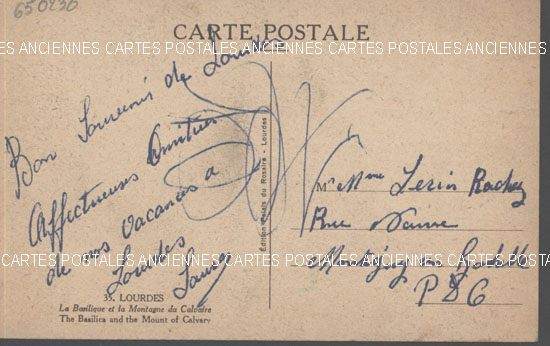 650230
CARTE POSTALE
CARTES POSTALES ANCIENNES CARTES POSTALES ANCIENNES CARTES POSTALES ANCIENNES
Bon Souvenir de Lourdes
Affectueuses Amitiés
de vos vacances a
Lourdes
35. LOURDES
La Basilique et la Montagne du Calvaire
The Basilica and the Mount of Calvary
Édition Palais du Rosaire - Lourdes
M
Mme
Rue
P D C
CARTES POSTALES ANCIENNES CARTES POSTALES ANCIENNES CARTES POSTALES ANCIENNES